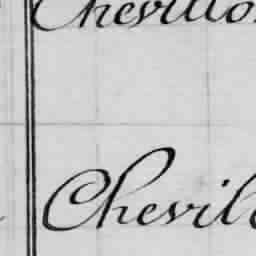 Chevillo
Chevil